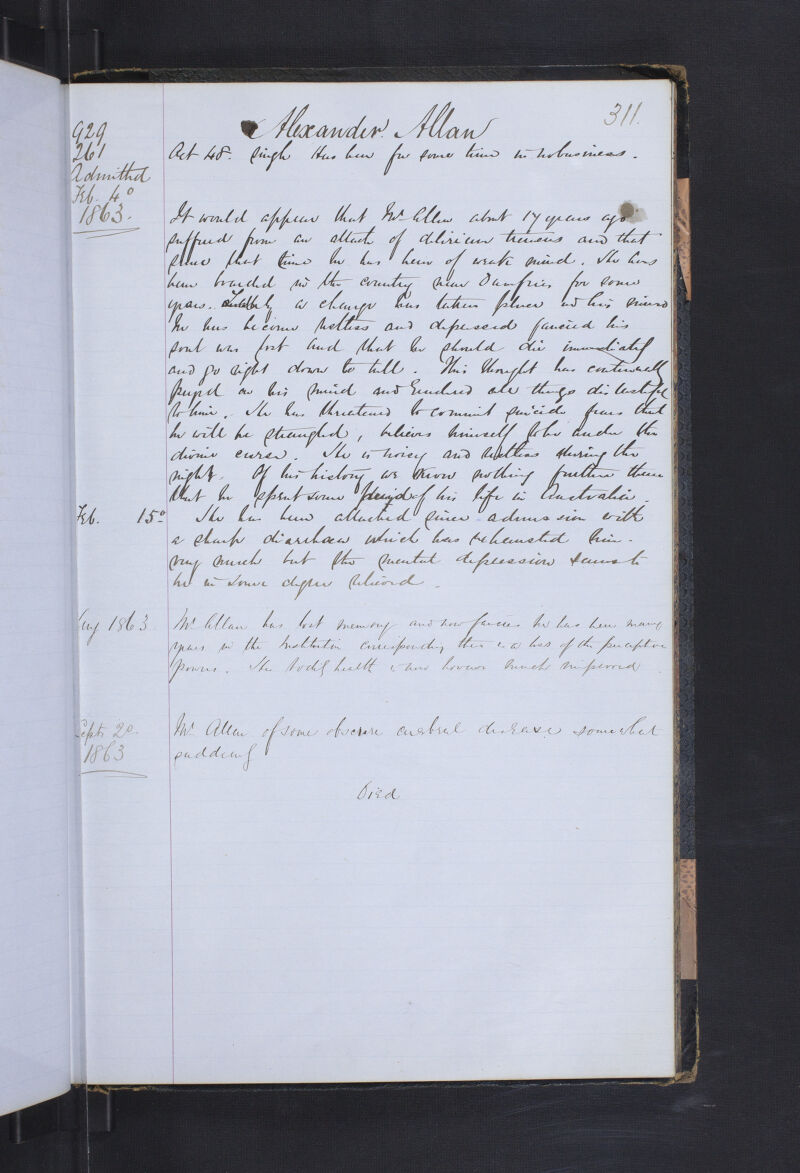 311.
Alexander Allan
929
261
Admitted
Feb. 4º
1863.
Aet 48. Single Has been for some time in no business.
It would appear that Mr Allan about 17 years ago
suffered from an attack of delirium tremens and that
since that time he has been of weak mind. He has
been boarded in the country near Dumfries for some
years. Lately a change has taken place in his mind
he has become restless and depressed fancied his
soul was lost and that he should die immediately
and go right down to Hell. This thought has continually
preyed on his mind and rendered all things distasteful
to him. He has threatened to commit suicide fears that
he will be strangled, believes himself to be under the
divine curse. He is noisy and restless during the
night. Of his history we know nothing further than
that he spent some period of his life in Australia.
Feb. 15º He has been attacked since admission with
a sharp diarrhoea which has exhausted him
very much but the mental depression seems to
be in some degree relieved.
Aug 1863 Mr Allan has lost memory and now fancies he has been many
years in the Institution corresponding there is a loss of the perceptive
powers. The bodily health is now however much improved
Septr 2º
1863
Mr Allan of some obscure cerebral disease somewhat
suddenly
Died